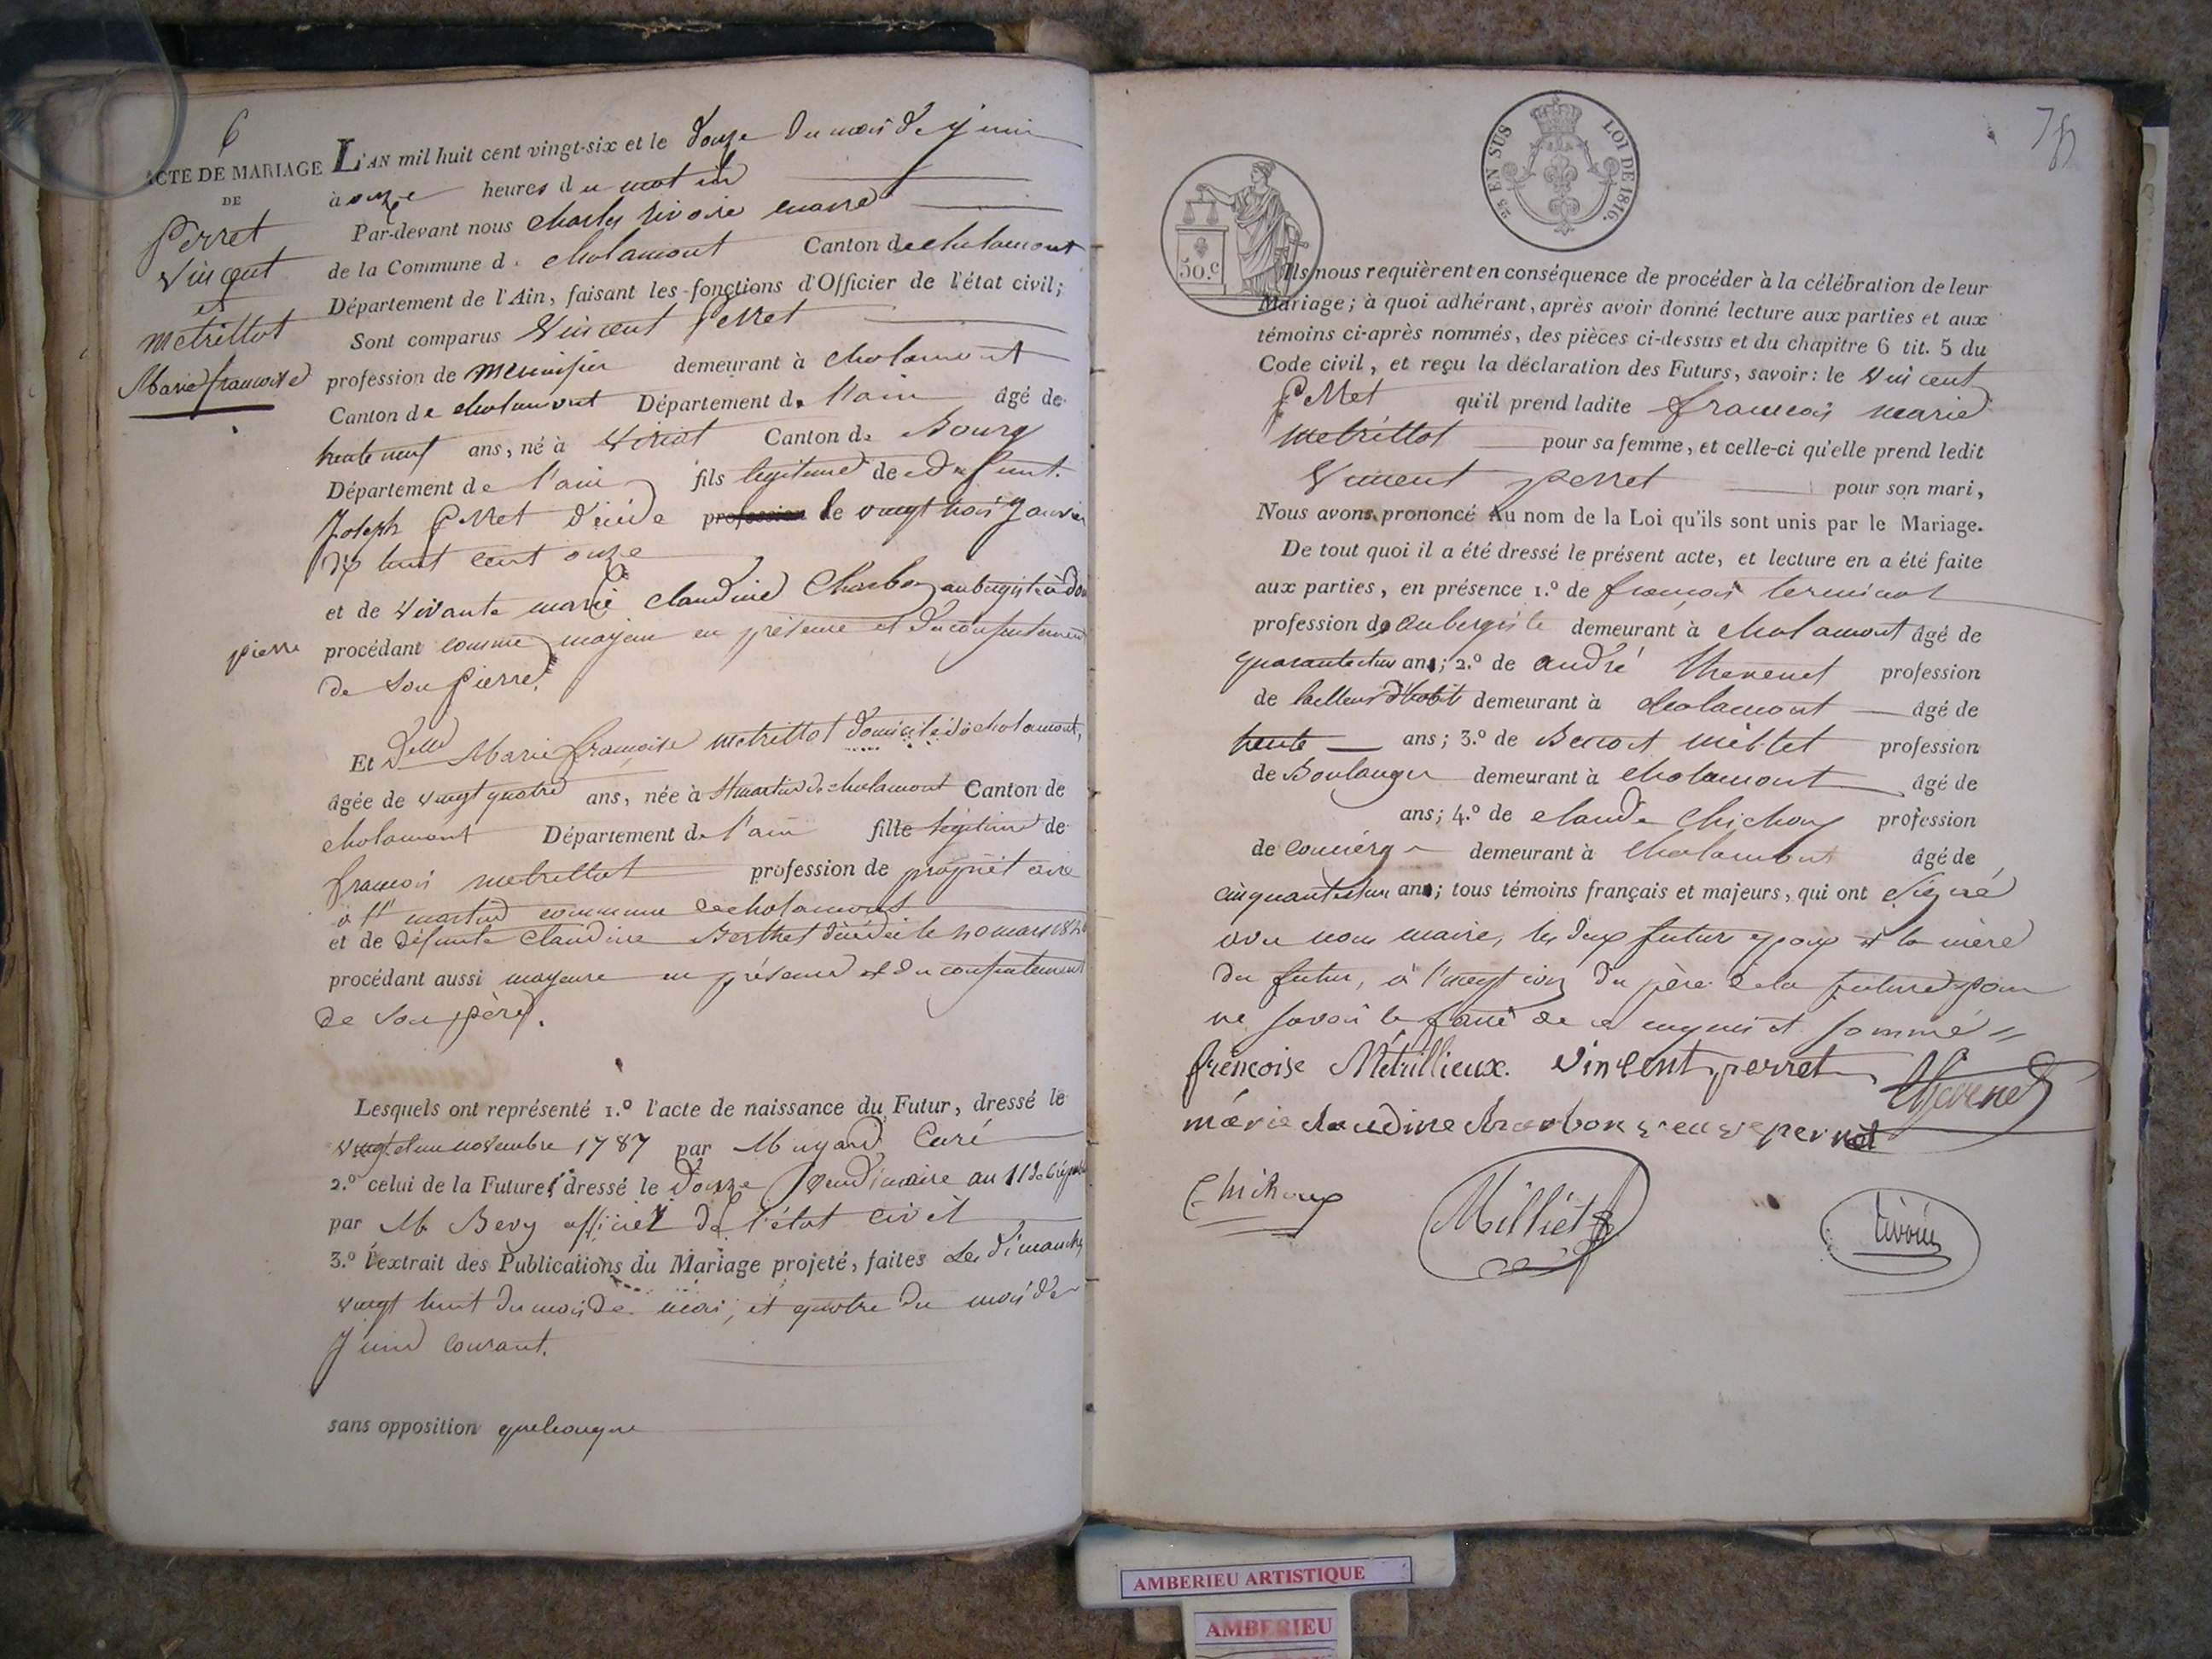 6
ACTE DE MARIAGE
DE
Perret
Vincent
et
Metrillot
Marie françoise
L'AN mil huit cent vingt-six et le douze du mois de juin
à onze heures du matin
Par-devant nous Charles Rivoire maire
de la Commune de Chalamont Canton de Chalamont
Département de l'Ain, faisant les fonctions d'Officier de l'état civil;
Sont comparus Vincent Perret
profession de menuisier demeurant à Chalamont
Canton de Chalamont Département de l'ain âgé de
trente neuf ans, né à Viriat Canton de Bourg
Département de l'ain fils legitime de defunt
Joseph Perret décédé profession le vingt trois Janvier
dix huit cent onze
et de vivante marie Claudine Charbon aubergiste à
pierre
procédant comme majeur en présence et du consentement
de Sou Pierre.
Et Delle Marie françoise Metrillot domicilié à Chalamont,
âgée de vingt quatre ans, née à St martin de chalamont Canton de
chalamont Département de l'ain fille legitime de
françois metrillot profession de propriétaire
à St martin commune de chalamont
et de défunte Claudine Berthet décédée le 10 mars
procédant aussi majeure en présence et du consentement
de son père.
Lesquels ont représenté 1.º l'acte de naissance du Futur, dressé le
vingt et un novembre 1787 par M Curé
2.º celui de la Future, dressé le douze Vendimaire an 11
par M Bevy officier de l'état civil
3.º l'extrait des Publications du Mariage projeté, faites Les dimanches
vingt huit du mois de mai, et quatre du mois de
Juin courant.
sans opposition quelconque
78
25 EN SUS LOI DE 1816.
50.c
Ils nous requièrent en conséquence de procéder à la célébration de leur
Mariage; à quoi adhérant, après avoir donné lecture aux parties et aux
témoins ci-après nommés, des pièces ci-dessus et du chapitre 6 tit. 5 du
Code civil, et reçu la déclaration des Futurs, savoir: le Vincent
Perret qu'il prend ladite françois marie
Metrillot pour sa femme, et celle-ci qu'elle prend ledit
Vincent perret pour son mari,
Nous avons prononcé Au nom de la Loi qu'ils sont unis par le Mariage.
De tout quoi il a été dressé le présent acte, et lecture en a été faite
aux parties, en présence 1.º de françois
profession de aubergiste demeurant à chalamont âgé de
quarante deux ans; 2.º de andré thevenet profession
de tailleur d'habit demeurant à chalamont âgé de
trente ans; 3.º de Benoit milliet profession
de Boulanger demeurant à chalamont âgé de
ans; 4.º de claude Chichoux profession
de concierge demeurant à chalamont âgé de
cinquante deux ans; tous témoins français et majeurs, qui ont signé
avec nous maire, les deux futurs epoux et la mère
du futur, à l'exeption du père de la future pour
ne savoir le faire de ce enquis et sommé
frencoise Métrillieux. vincent perret Thevenet
marie claudine charbon veuve perret
Chichoux Milliet Rivoire
AMBERIEU ARTISTIQUE
AMBERIEU